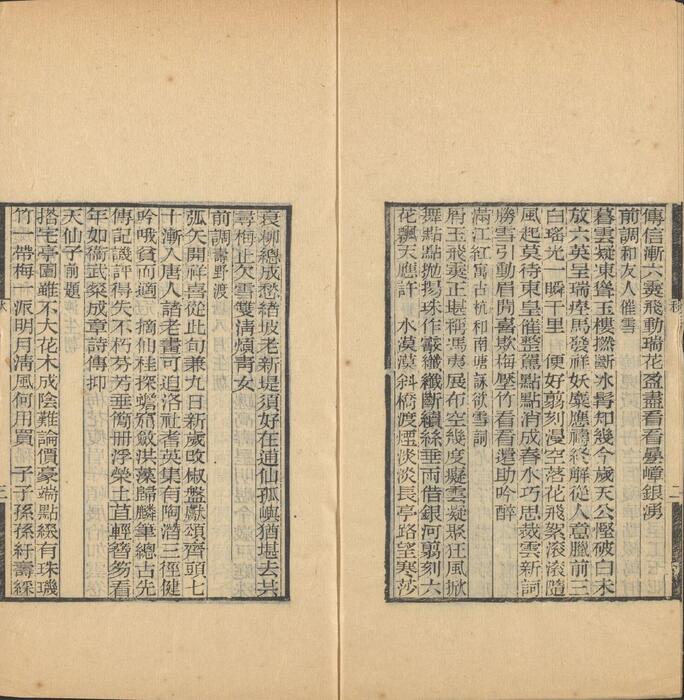 傳信漸六霙飛動瑞花盈盡看看疊嶂銀湧
前調和友人催雪
暮雲疑東聳玉樓撚斷冰髯知幾今歲天公慳破白未
放六英呈瑞瘗馬發祥妖麋應禱終解從人意臘前三
白瑤光一瞬千里 便好剪刻漫空落花飛絮滾滾隨
風起莫待東皇催整駕點點消成春水巧思裁雲新詞
勝雪引動眉開喜欺梅壓竹看看還助吟醉
滿江紅寓古杭和南塘詠欲雪詞
屑玉飛霙正堪稱馮夷展布空幾度癡雲凝聚狂風掀
舞點點拋揚珠作簌纖纖斷續絲垂雨借銀河剪刻六
花飄天應許 水漠漠斜橋渡煙淡淡長亭路望寒莎
衰柳總成愁緒坡老新堤須好在逋仙孤嶼猶堪去共
尋梅止欠雪雙清煩青女
前調壽野渡
弧矢開祥喜從此旬兼九日新歲改椒盤獻頌齊頭七
十漸入唐人諸老畫可追洛社耆英集有陶潛三徑健
吟哦貧而適 摘仙桂探蟾窟斂洪藻歸麟筆總古先
傳記譏評得失不朽芬芳垂簡冊浮榮土苴輕簪笏看
年如衞武粲成章詩傳抑
天仙子前題
搭宅亭園雖不大花木成陰難論價豪端點綴有珠璣
竹一帶梅一派明月淸風何用買 子子孫孫紆壽綵
秋
二
三